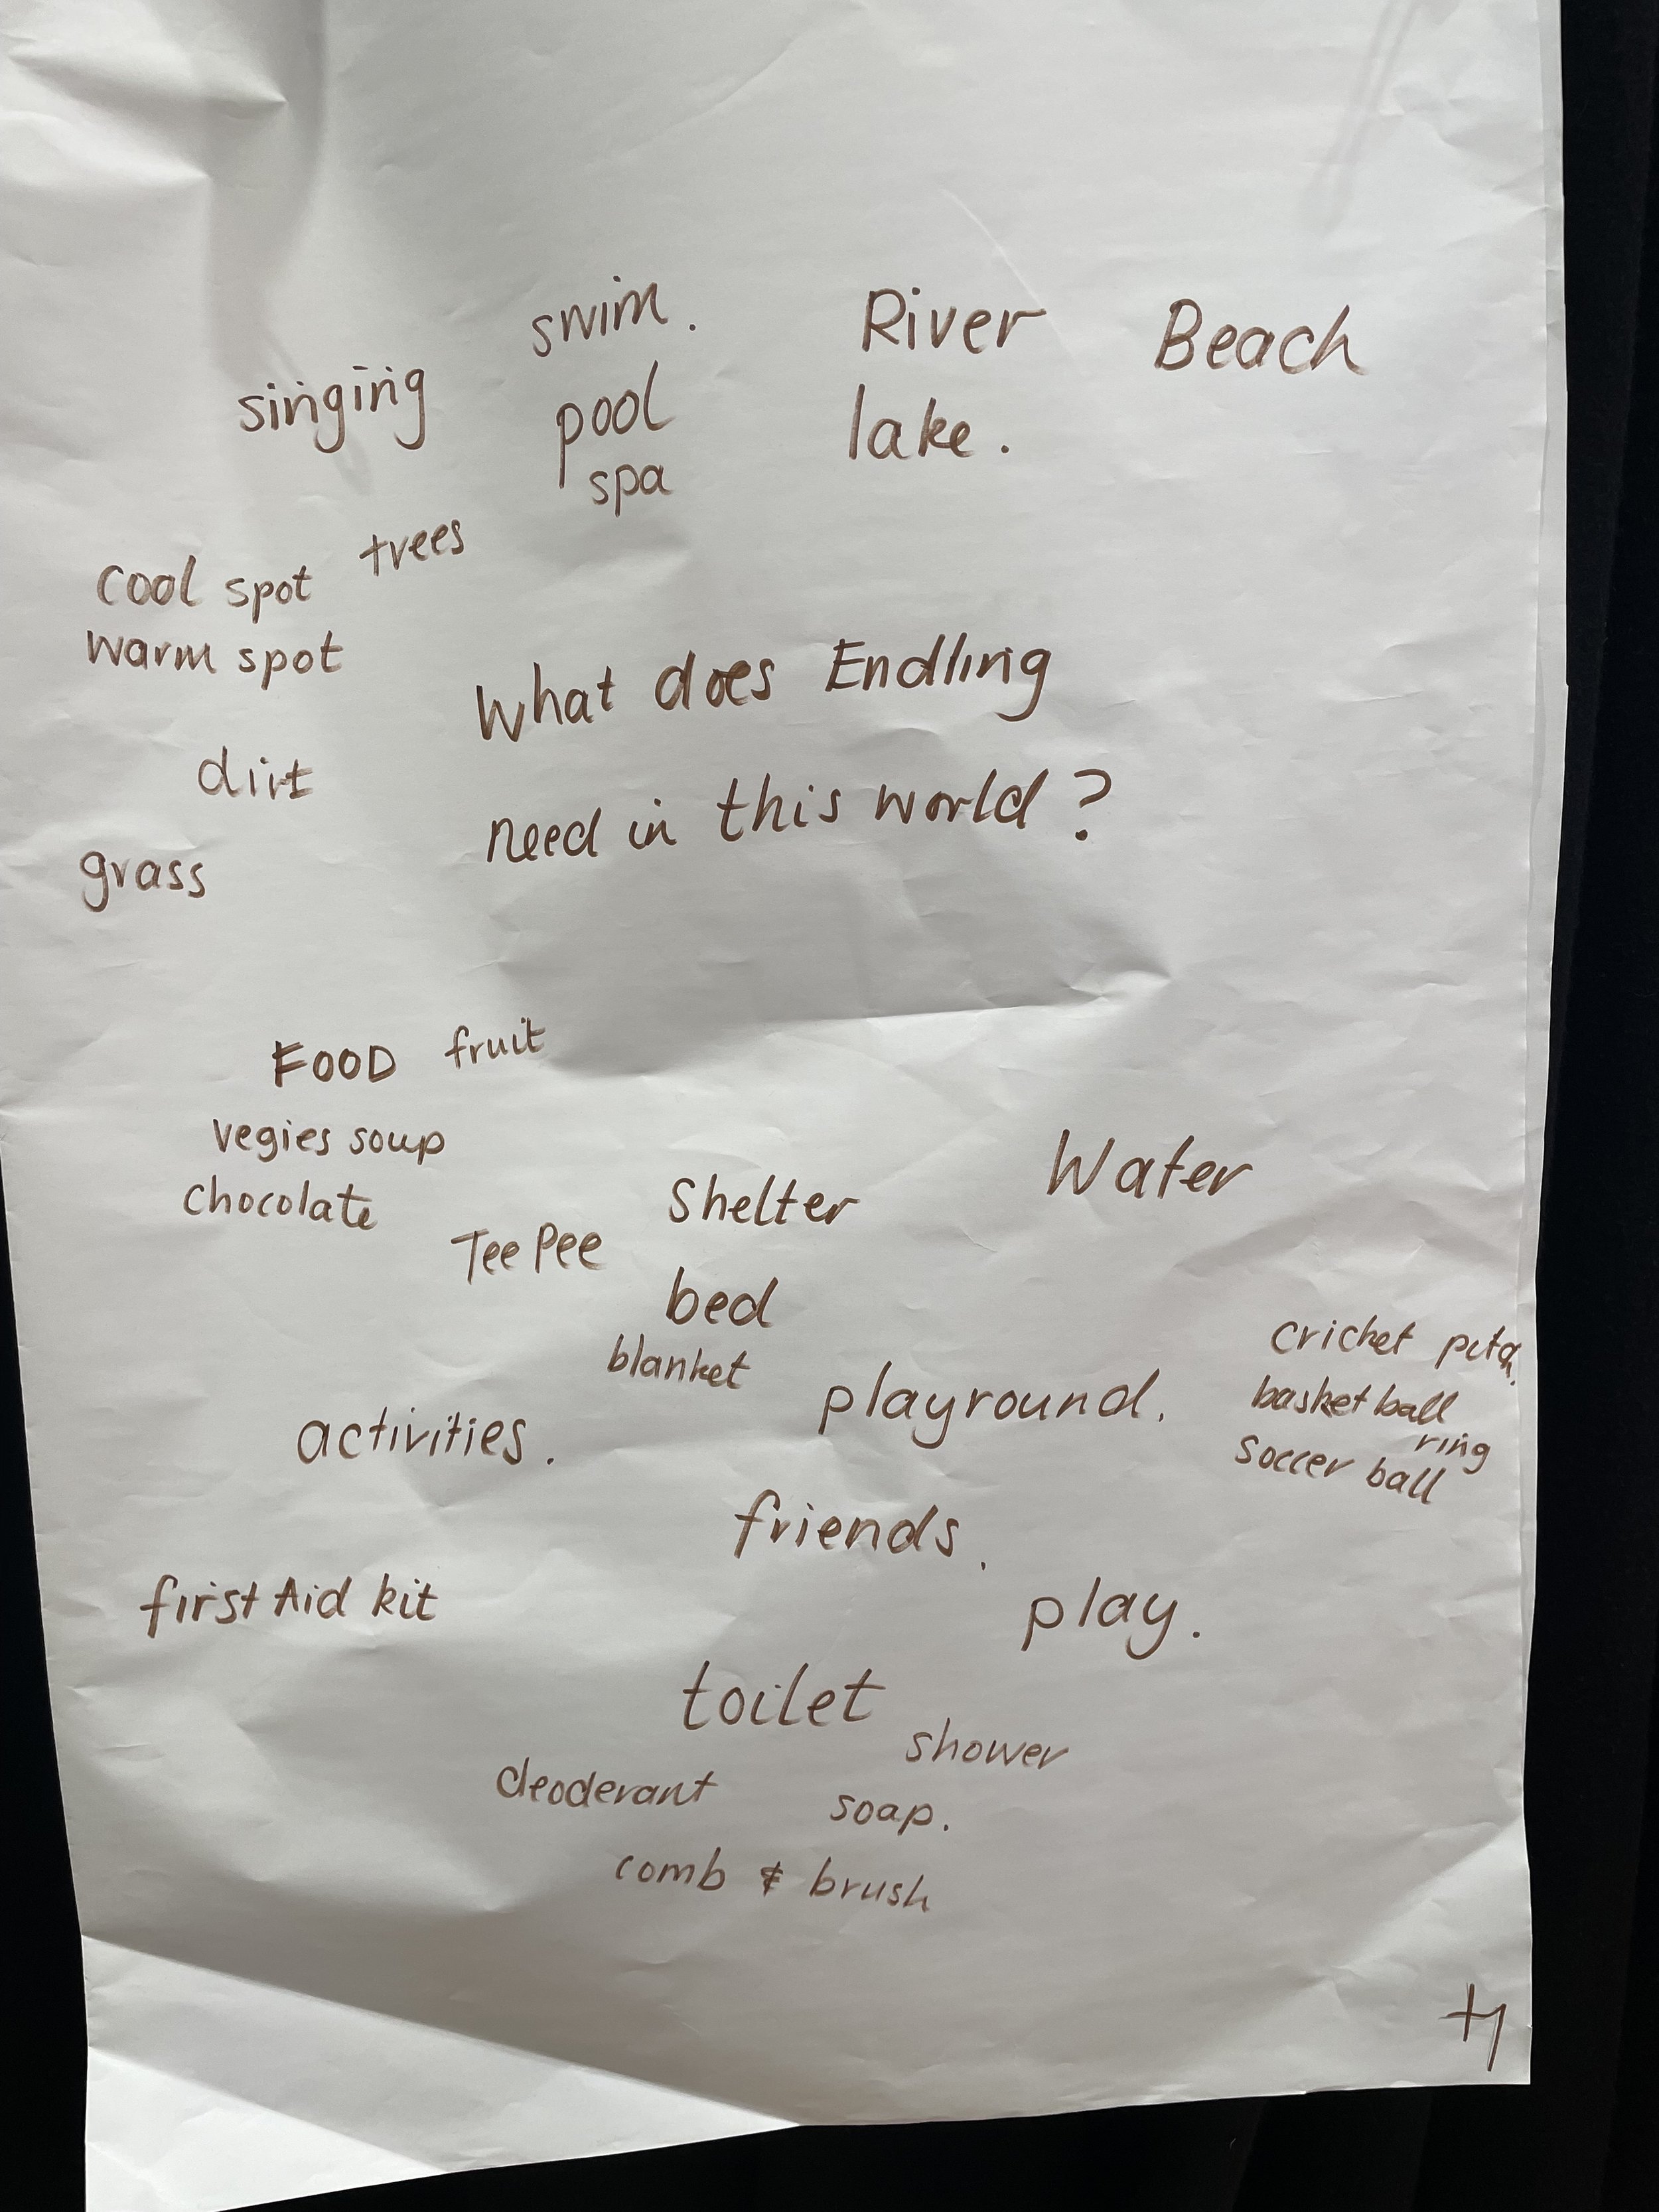 swim.
River
Beach
singing
pool
lake.
spa
trees
cool spot
warm spot
What does Endling
dirt
need in this world?
grass
FOOD fruit
vegies soup
chocolate
Shelter
Water
Tee Pee
bed
blanket
cricket pitch.
playround.
basket ball
ring
soccer ball
activities.
friends.
first Aid kit
play.
toilet
shower
deoderant
soap.
comb & brush